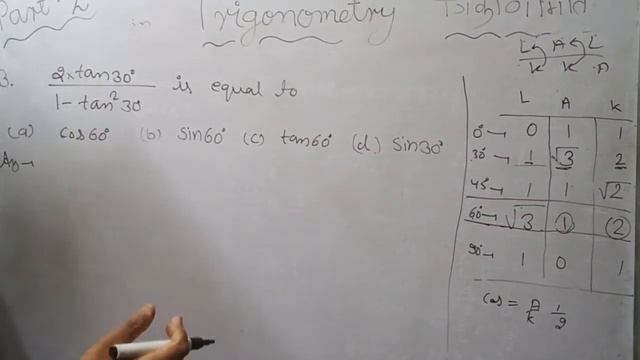 Part 2 in Trigonometry त्रिकोणमिति
L A L
K K A
3. 2×tan30° / 1 - tan²30 is equal to
(a) cos60° (b) sin60° (c) tan60° (d.) sin30°
Ans→
L A K
0°→ 0 1 1
30°→ 1 √3 2
45→ 1 1 √2
60°→ √3 1 2
90→ 1 0 1
Cos = A/K 1/2